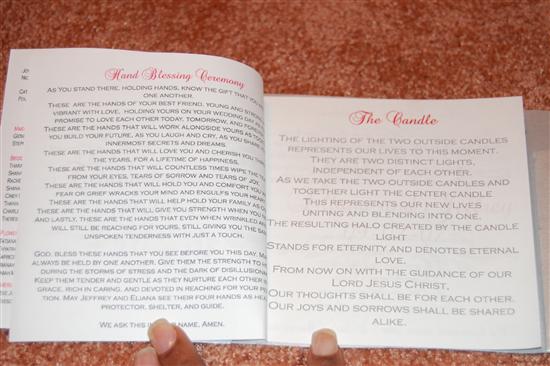 Hand Blessing Ceremony
As you stand there, holding hands, know the gift that you
one another.
These are the hands of your best friend, young and strong
vibrant with love, holding yours on your wedding day as
promise to love each other today, tomorrow, and fo
These are the hands that will work alongside yours as tog
you build your future, as you laugh and cry, as you share
innermost secrets and dreams.
These are the hands that will love you and cherish you th
the years, for a lifetime of happiness.
These are the hands that will countless times wipe the
from your eyes, tears of sorrow and tears of joy.
These are the hands that will hold you and comfort you
fear or grief wracks your mind and engulfs your hear
These are the hands that will help hold your family as
These are the hands that will give you strength when you
And lastly, these are the hands that even when wrinkled an
will still be reaching for yours, still giving you the sam
unspoken tenderness with just a touch.
God, bless these hands that you see before you this day. M
always be held by one another. Give them the strength to h
during the storms of stress and the dark of disillusion
Keep them tender and gentle as they nurture each other
grace, rich in caring, and devoted in reaching for your p
tion. May Jeffrey and Eliana see their four hands as hea
protector, shelter, and guide.
We ask this in your name, Amen.
The Candle
The lighting of the two outside candles
represents our lives to this moment.
They are two distinct lights,
independent of each other.
As we take the two outside candles and
together light the center candle
This represents our new lives
uniting and blending into one.
The resulting halo created by the candle
light
Stands for eternity and denotes eternal
love.
From now on with the guidance of our
Lord Jesus Christ,
Our thoughts shall be for each other.
Our joys and sorrows shall be shared
alike.